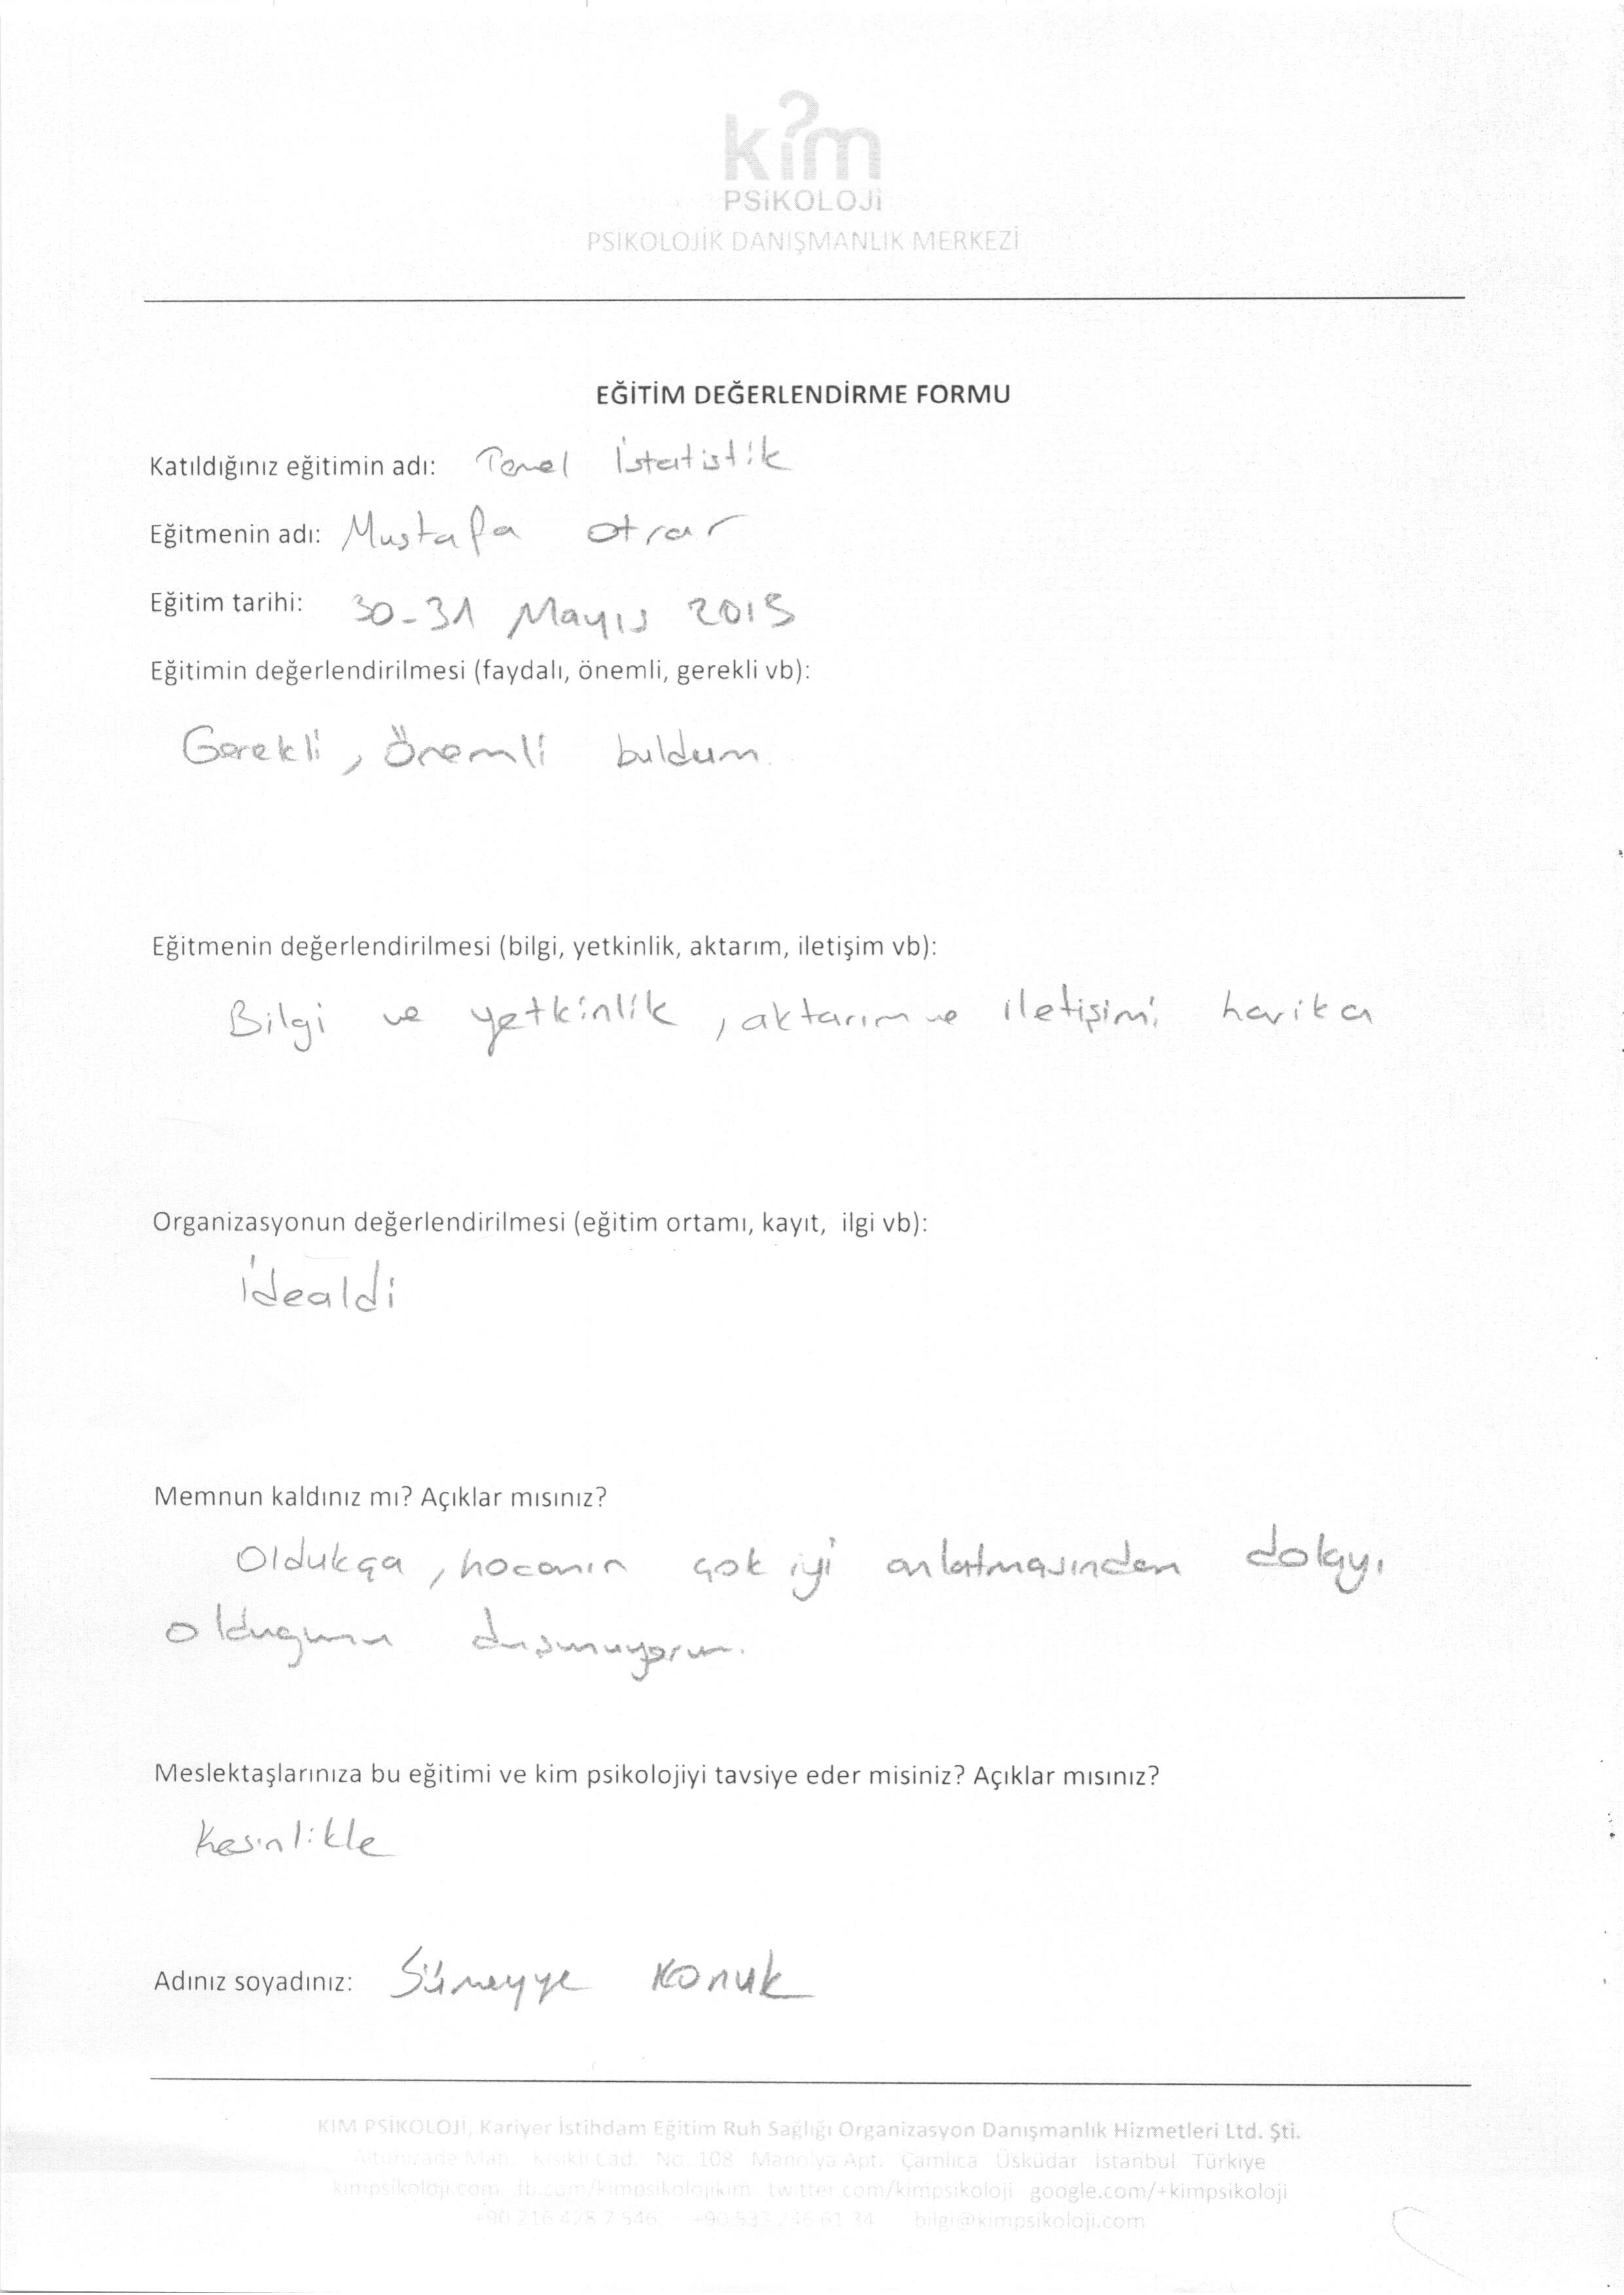 kim
PSiKOLOJi
PSİKOLOJİK DANIŞMANLIK MERKEZİ
EĞİTİM DEĞERLENDİRME FORMU
Katıldığınız eğitimin adı: Temel İstatistik
Eğitmenin adı: Mustafa Otrar
Eğitim tarihi: 30-31 Mayıs 2015
Eğitimin değerlendirilmesi (faydalı, önemli, gerekli vb):
Gerekli, Önemli buldum.
Eğitmenin değerlendirilmesi (bilgi, yetkinlik, aktarım, iletişim vb):
Bilgi ve yetkinlik, aktarım ve iletişimi harika
Organizasyonun değerlendirilmesi (eğitim ortamı, kayıt, ilgi vb):
İdealdi
Memnun kaldınız mı? Açıklar mısınız?
Oldukça, hocanın çok iyi anlatmasından dolayı
olduğunu düşünüyorum.
Meslektaşlarınıza bu eğitimi ve kim psikolojiyi tavsiye eder misiniz? Açıklar mısınız?
Kesinlikle
Adınız soyadınız: Sümeyye Konuk
KİM PSİKOLOJİ, Kariyer İstihdam Eğitim Ruh Sağlığı Organizasyon Danışmanlık Hizmetleri Ltd. Şti.
Altunizade Mah. Kısıklı Cad. No: 108 Manolya Apt. Çamlıca Üsküdar İstanbul Türkiye
kimpsikoloji.com fb.com/kimpsikolojikim twitter.com/kimpsikoloji google.com/+kimpsikoloji
+90 216 428 7 546 bilgi@kimpsikoloji.com